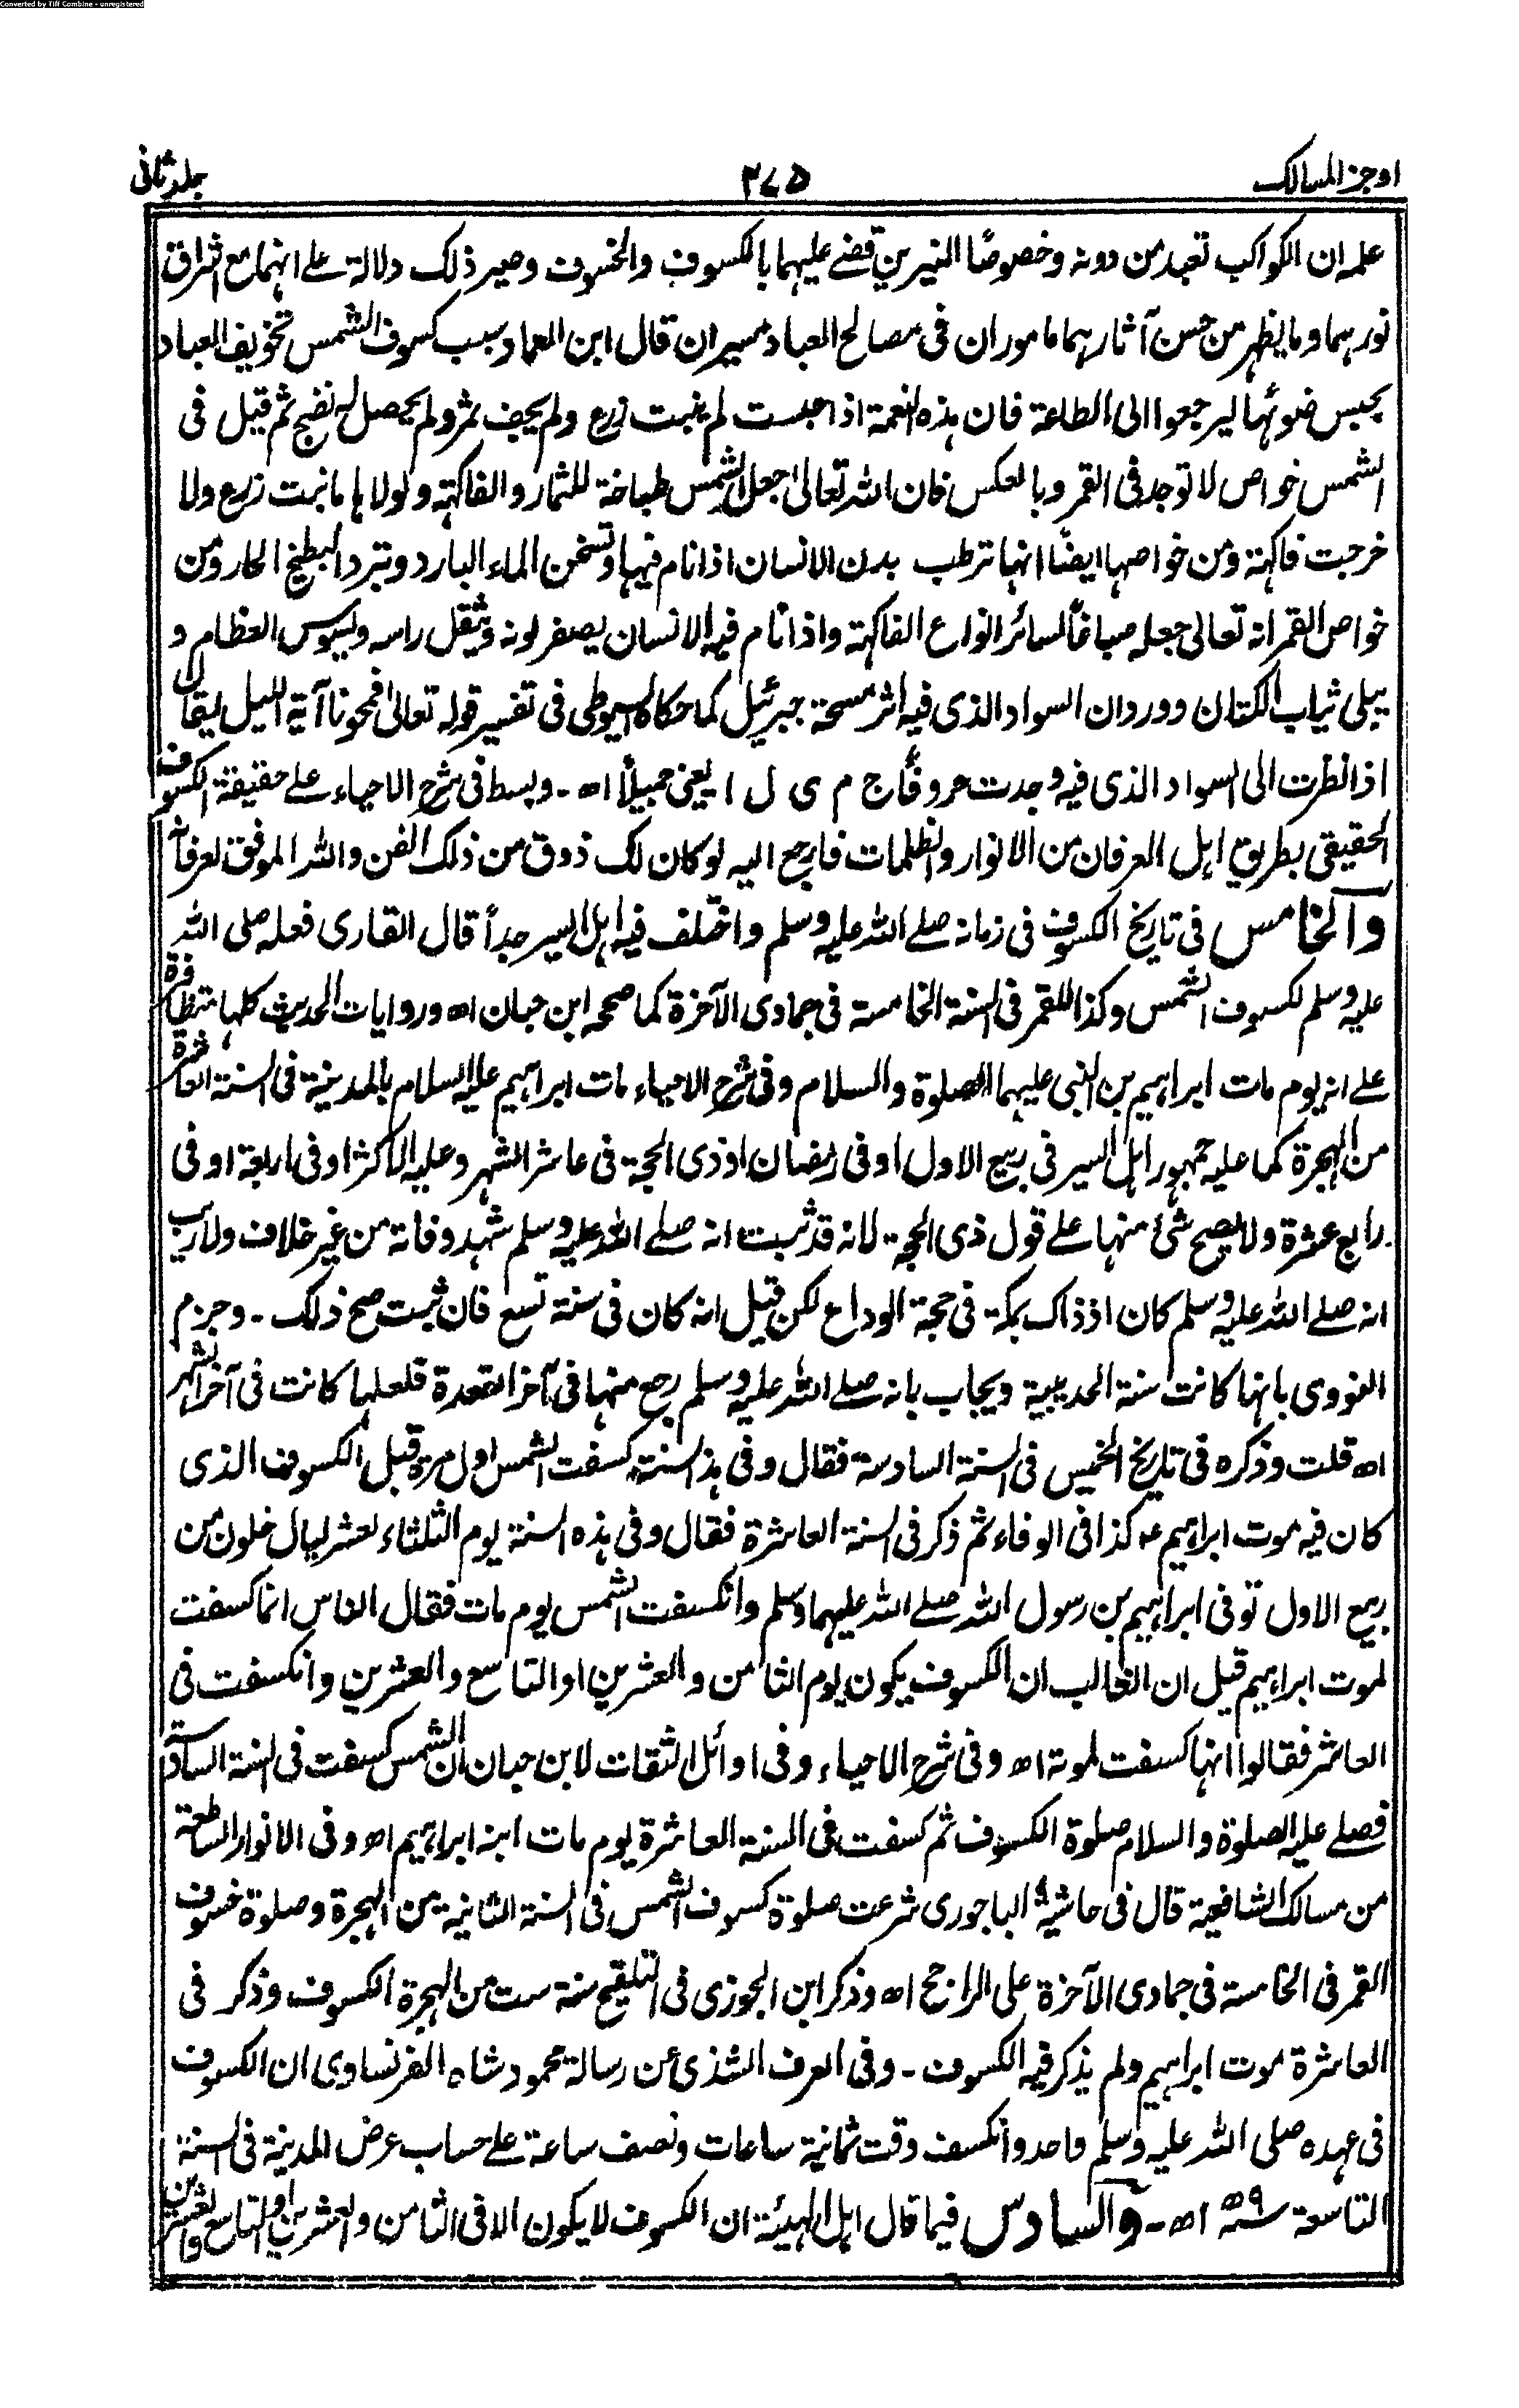 Converted by Tiff Combine - unregistered
اوجز المسالك
٢٧٥
جلد ثانى
علمه ان الكواكب تعبد من دونه وخصوصًا النيرين قضے عليهما بالكسوف والخسوف وصير ذلك دلالة علے انهما مع اشراق
نورهما وما يظهر من حسن آثارهما ماموران فى مصالح العباد مسيران قال ابن العماد سبب كسوف الشمس تخويف العباد
بحبس ضوئها ليرجعوا الى الطاعة فان هذه النعمة اذا حبست لم ينبت زرع ولم يجف ثمر ولم يحصل له نضج ثم قيل فى
الشمس خواص لا توجد فى القمر وبالعكس فان الله تعالىٰ جعل الشمس طباخة للثمار والفاكهة ولولاها ما نبت زرع ولا
خرجت فاكهة ومن خواصها ايضًا انها ترطب بدن الانسان اذا نام فيها وتسخن الماء البارد وتبرد البطيخ الحار ومن
خواص القمر انه تعالى جعله صباغًا لسائر انواع الفاكهة واذا نام فيه الانسان يصفر لونه ويثقل راسه ويسوس العظام و
يبلى ثياب الكتان وورد ان السواد الذى فيه اثر مسحة جبرئيل كما حكاه السيوطى فى تفسير قوله تعالىٰ فمحونا آية الليل يقال
اذا نظرت الى السواد الذى فيه وجدت حروفًا ج م ى ل ا يعنى جميلًا اه - وبسط فى شرح الاحياء علے حقيقة الكسوف
الحقيقى بطريق اهل العرفان من الانوار والظلمات فارجع اليه لو كان لك ذوق من ذلك الفن والله الموفق لعرفانه
والخامس فى تاريخ الكسوف فى زمانه صلے الله عليه وسلم واختلف فيه اهل السير جدًا قال القارى فعله صلى الله
عليه وسلم لكسوف الشمس وكذا للقمر فى السنة الخامسة فى جمادى الآخرة كما صححه ابن حبان اه وروايات الحديث كلها متظافرة
علے انه يوم مات ابراهيم بن النبى عليهما الصلوة والسلام وفى شرح الاحياء مات ابراهيم عليه السلام بالمدينة فى السنة العاشرة
من الهجرة كما عليه جمهور اهل السير فى ربيع الاول او فى رمضان او ذى الحجة فى عاشر الشهر وعليه الاكثر او فى اربعة او فى
رابع عشرة ولا يصح شئ منها علے قول ذى الحجة لانه قد ثبت انه صلے الله عليه وسلم شهد وفاته من غير خلاف ولا ريب
انه صلے الله عليه وسلم كان اذ ذاك بمكة فى حجة الوداع لكن قيل انه كان فى سنة تسع فان ثبت صح ذلك - وجزم
النووى بانها كانت سنة الحديبية ويجاب بانه صلے الله عليه وسلم رجع منها فى آخر القعدة فلعلها كانت فى آخر الشهر
اه قلت وذكره فى تاريخ الخميس فى السنة السادسة فقال وفى هذه السنة كسفت الشمس اول مرة قبل الكسوف الذى
كان فيه موت ابراهيم عـ كذا فى الوفاء ثم ذكر فى السنة العاشرة فقال وفى هذه السنة يوم الثلثاء لعشر ليال خلون من
ربيع الاول توفى ابراهيم بن رسول الله صلے الله عليهما وسلم وانكسفت الشمس يوم مات فقال الناس انما كسفت
لموت ابراهيم قيل ان الغالب ان الكسوف يكون يوم الثامن والعشرين او التاسع والعشرين وانكسفت فى
العاشر فقالوا انها كسفت لموته اه وفى شرح الاحياء وفى اوائل الثقات لابن حبان ان الشمس كسفت فى السنة السادسة
فصلے عليه الصلوة والسلام صلوة الكسوف ثم كسفت فى السنة العاشرة يوم مات ابنه ابراهيم اه وفى الانوار الساطعة
من مسالك الشافعية قال فى حاشية الباجورى شرعت صلوة كسوف الشمس فى السنة الثانية من الهجرة وصلوة خسوف
القمر فى الخامسة فى جمادى الآخرة على الراجح اه وذكر ابن الجوزى فى التلقيح سنة ست من الهجرة الكسوف وذكر فى
العاشرة موت ابراهيم ولم يذكر فيه الكسوف - وفى العرف الشذى عن رسالة محمود شاه الفرنساوى ان الكسوف
فى عهده صلى الله عليه وسلم واحد وانكسف وقت ثمانية ساعات ونصف ساعة علے حساب عرض المدينة فى السنة
التاسعة سنه ٩ه اه - والسادس فيما قال اهل الهيئة ان الكسوف لا يكون الا فى الثامن والعشرين او التاسع والعشرين